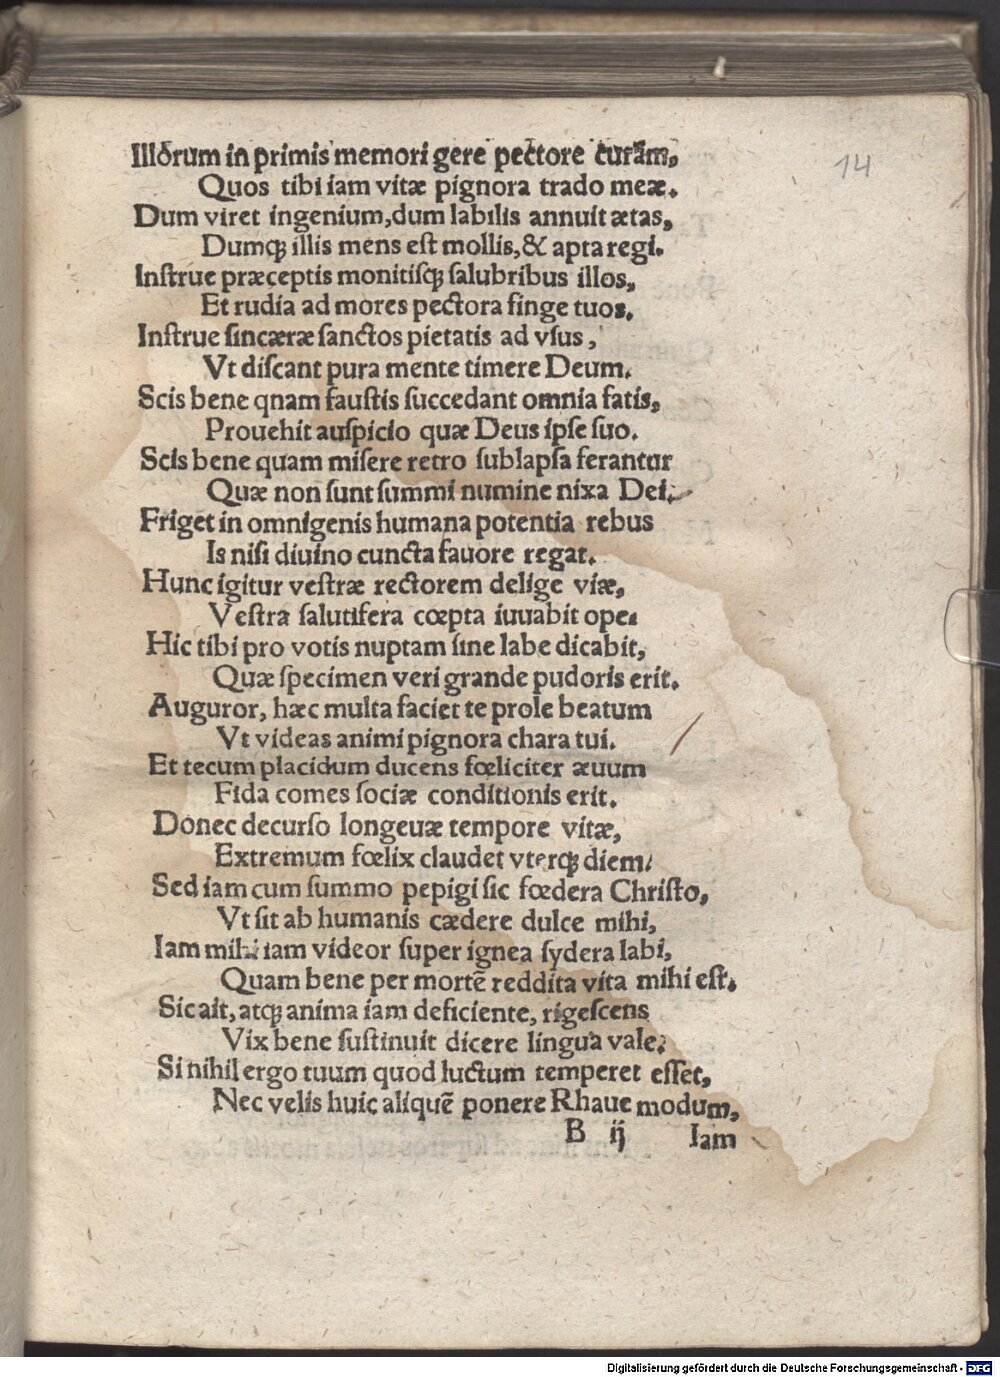 14
Illorum in primis memori gere pectore curam,
Quos tibi iam vitæ pignora trado meæ.
Dum viret ingenium, dum labilis annuit ætas,
Dumqꝫ illis mens eſt mollis, & apta regi.
Inſtrue præceptis monitiſqꝫ ſalubribus illos,
Et rudia ad mores pectora finge tuos.
Inſtrue ſincæræ ſanctos pietatis ad vſus,
Vt diſcant pura mente timere Deum.
Scis bene qnam fauſtis ſuccedant omnia fatis,
Prouehit auſpicio quæ Deus ipſe ſuo.
Scis bene quam miſere retro ſublapſa ferantur
Quæ non ſunt ſummi numine nixa Dei.
Friget in omnigenis humana potentia rebus
Is niſi diuino cuncta fauore regat.
Hunc igitur veſtræ rectorem delige viæ,
Veſtra ſalutifera cœpta iuuabit ope.
Hic tibi pro votis nuptam ſine labe dicabit,
Quæ ſpecimen veri grande pudoris erit.
Auguror, hæc multa faciet te prole beatum
Vt videas animi pignora chara tui.
Et tecum placidum ducens fœliciter æuum
Fida comes ſociæ conditionis erit.
Donec decurſo longeuæ tempore vitæ,
Extremum fœlix claudet vterqꝫ diem.
Sed iam cum ſummo pepigi ſic fœdera Chriſto,
Vt ſit ab humanis cædere dulce mihi,
Iam mihi iam videor ſuper ignea ſydera labi,
Quam bene per mortẽ reddita vita mihi eſt.
Sic ait, atqꝫ anima iam deficiente, rigeſcens
Vix bene ſuſtinuit dicere lingua vale.
Si nihil ergo tuum quod luctum temperet eſſet,
Nec velis huic aliquẽ ponere Rhaue modum,
B ij Iam
Digitalisierung gefördert durch die Deutsche Forschungsgemeinschaft - DFG